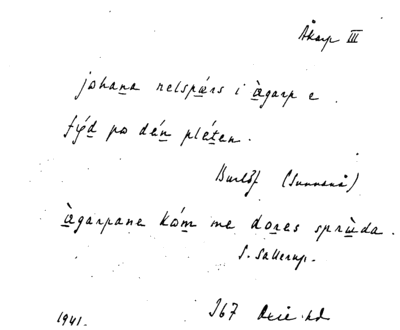 Åkarp III
johana nelspérs i àgarp e
fýd po dén pléten.
Burlöf (Sunnanå)
àgarpane kóm me dores sprùda.
S. Sallerup.
1941.